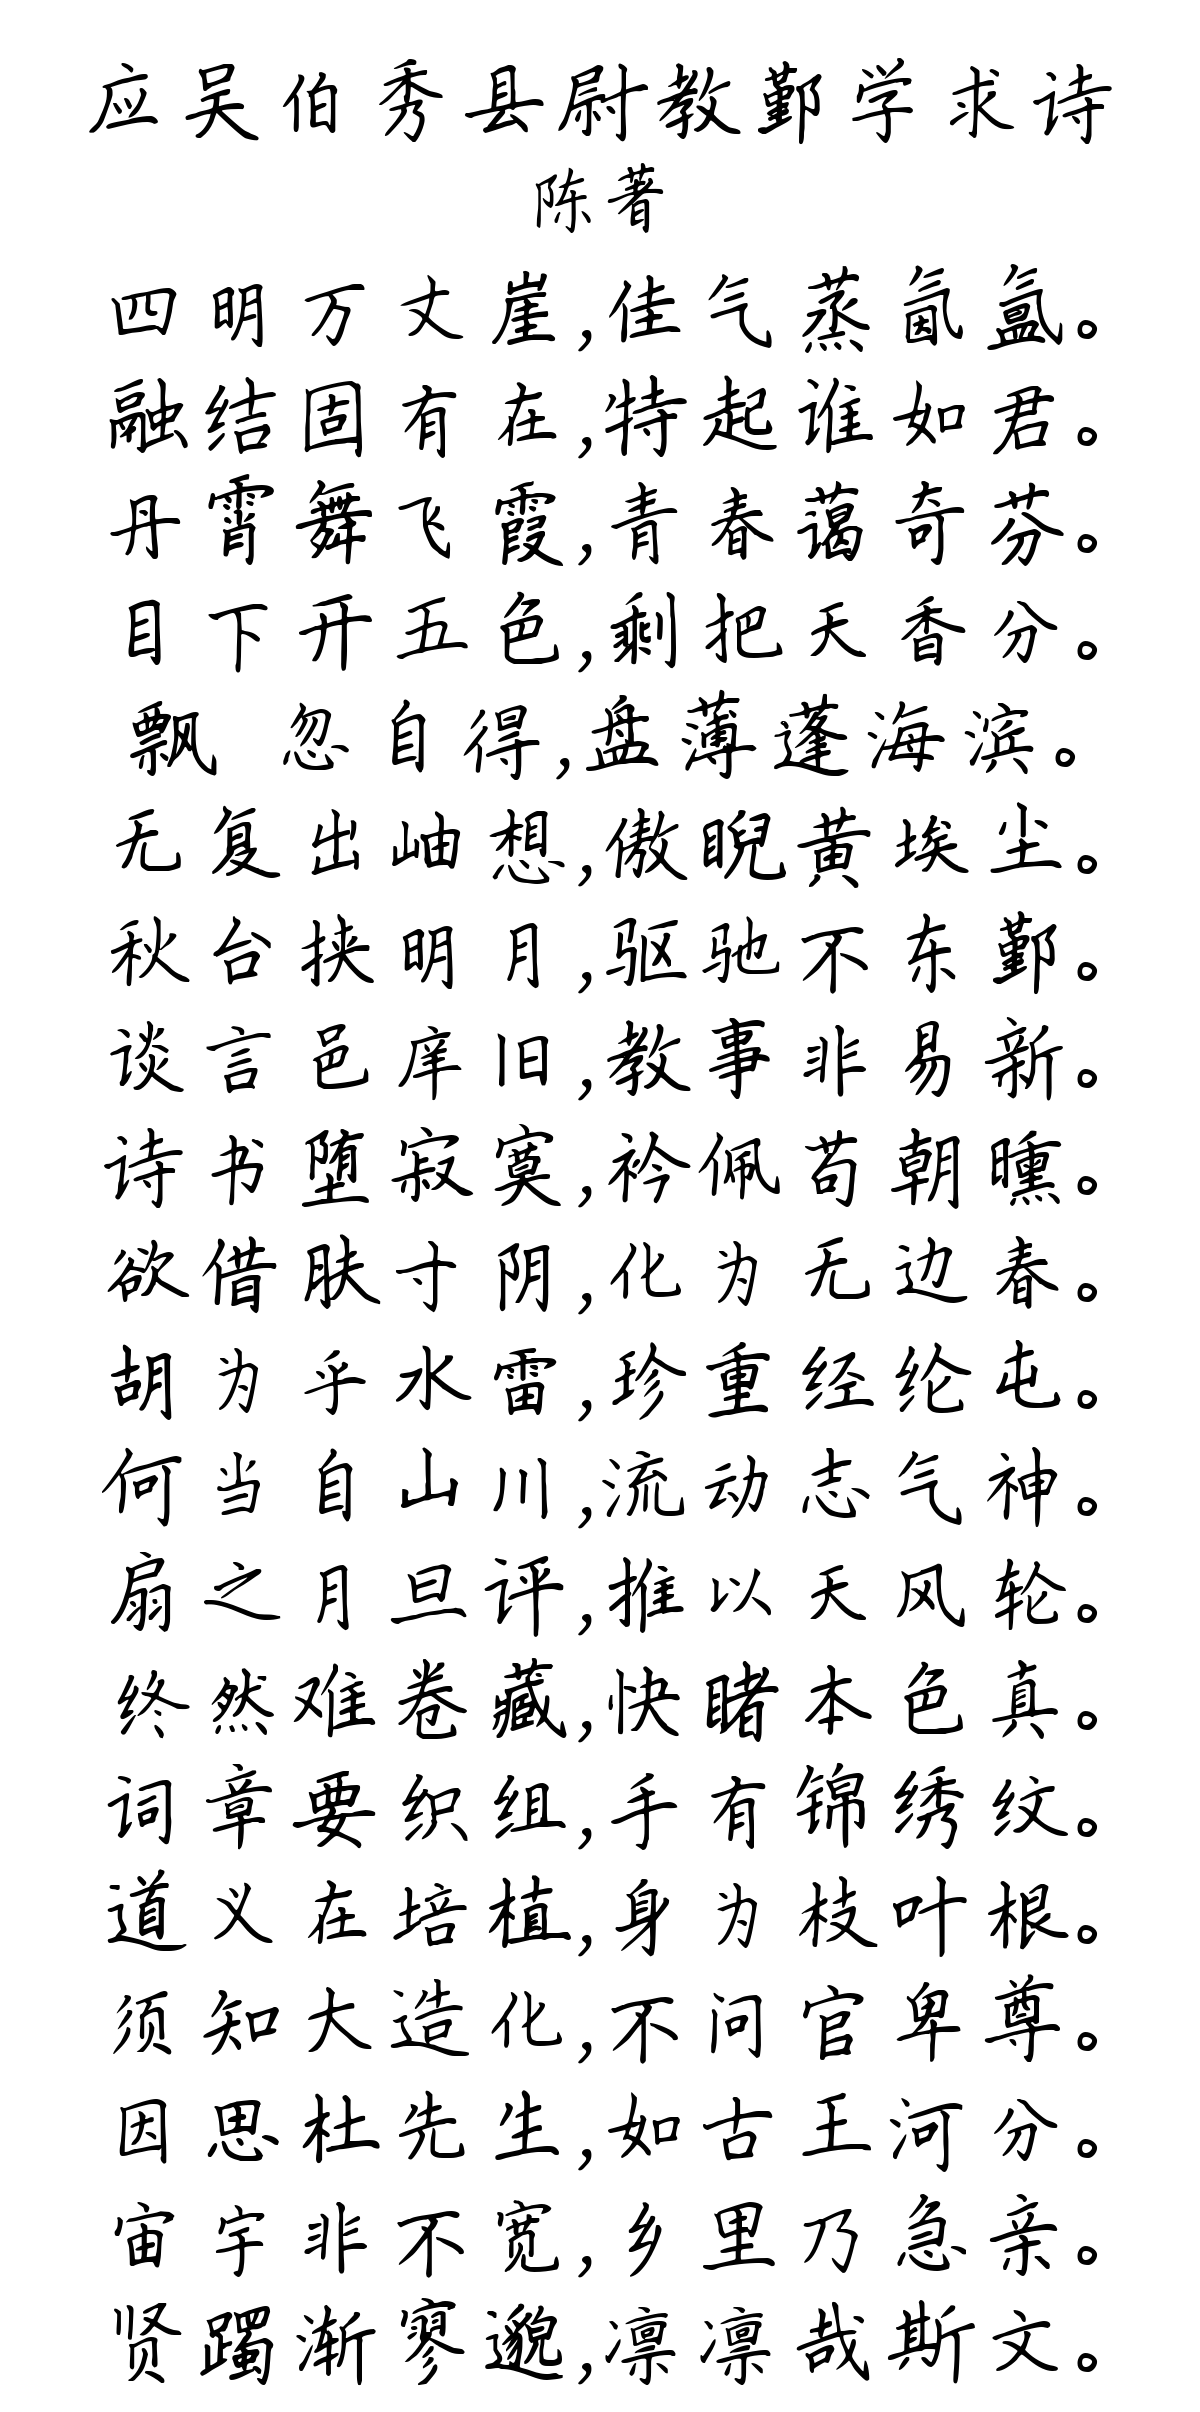 应吴伯秀县尉教鄞学求诗
陈著
四明万丈崖,佳气蒸氤氲。
融结固有在,特起谁如君。
丹霄舞飞霞,青春蔼奇芬。
目下开五色,剩把天香分。
飘 忽自得,盘薄蓬海滨。
无复出岫想,傲睨黄埃尘。
秋台挟明月,驱驰不东鄞。
谈言邑庠旧,教事非易新。
诗书堕寂寞,衿佩苟朝曛。
欲借肤寸阴,化为无边春。
胡为乎水雷,珍重经纶屯。
何当自山川,流动志气神。
扇之月旦评,推以天风轮。
终然难卷藏,快睹本色真。
词章要织组,手有锦绣纹。
道义在培植,身为枝叶根。
须知大造化,不问官卑尊。
因思杜先生,如古王河分。
宙宇非不宽,乡里乃急亲。
贤躅渐寥邈,凛凛哉斯文。